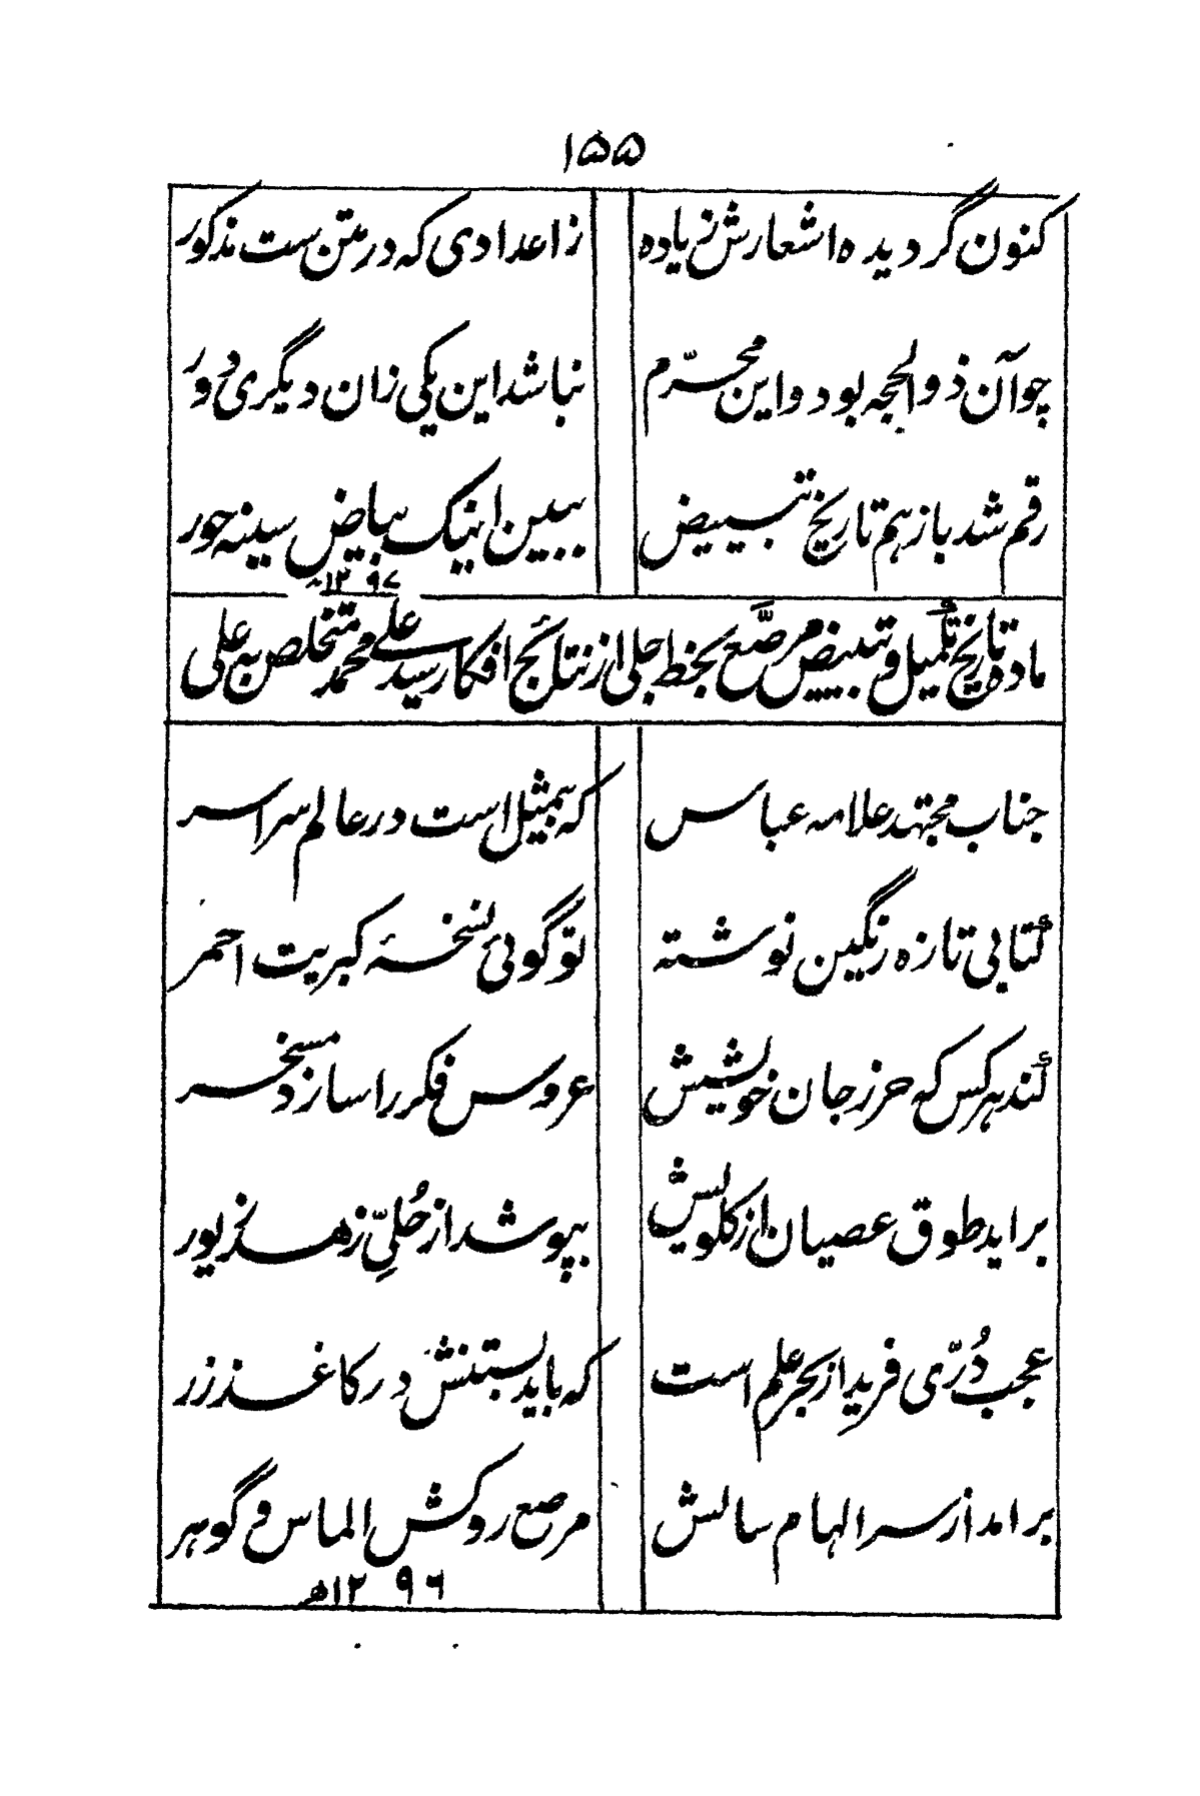 ۱۵۵
کنون گردیده اشعارش زیاده
ز اعدادی که در متن ست مذکور
چو آن ذوالحجه بود و این محرّم
نباشد این یکی زان دیگری دور
رقم شد باز هم تاریخ تبییض
ببین اینک بیاض سینه حور
۱۲۹۷ھ
ماده تاریخ تکمیل و تبییض مرصّع بخط جلی از نتائج افکار سید علی محمد متخلص به علی
جناب مجتهد علامه عباس
که بیمثیل است در عالم سراسر
کتابی تازه رنگین نوشته
تو گوئی نسخهٔ کبریت احمر
کند هر کس که حرز جان خویشش
عروس فکر را سازد مسخر
براید طوق عصیان از کلویش
بپوشد از حُلیِّ زهد زیور
عجب دُرّی فرید از بحر علم است
که باید بستنش در کاغذ زر
برامد از سر الهام سالش
مرصع روکش الماس و گوهر
۱۲۹۶ھ